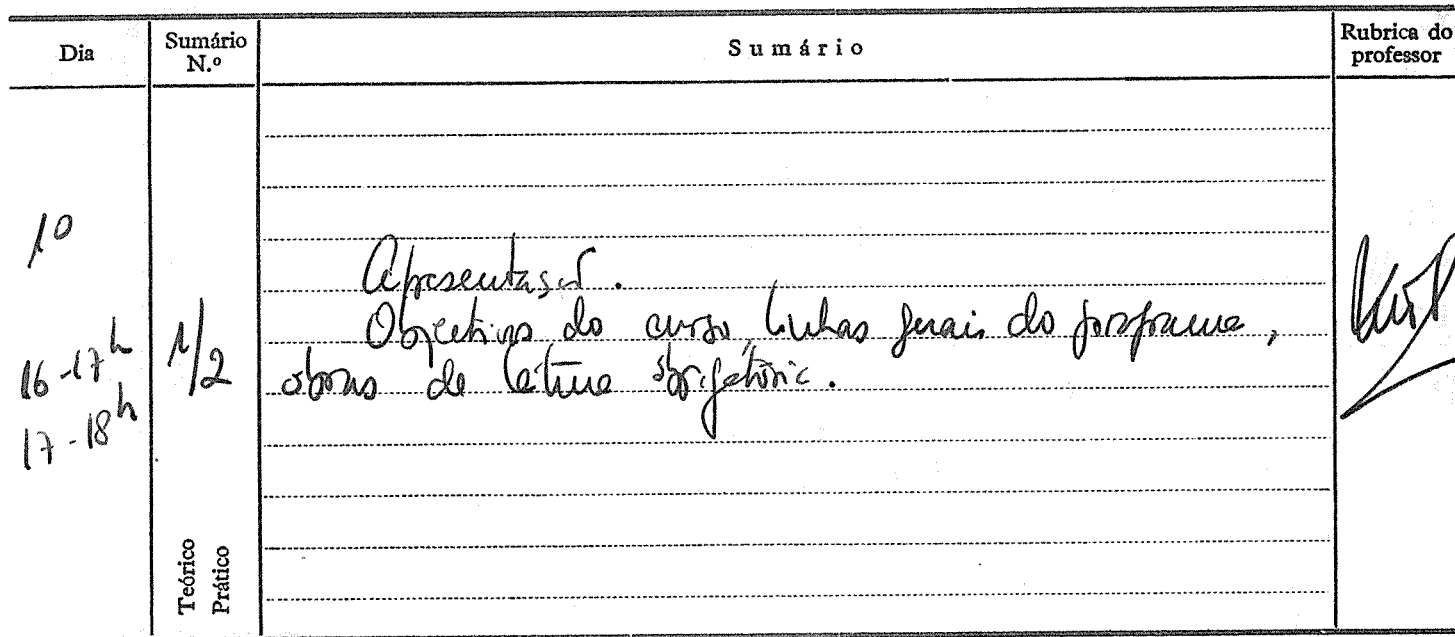 Dia
Sumário N.º
Sumário
Rubrica do professor
10
16-17h
17-18h
1/2
Apresentação.
Objectivos do curso, linhas gerais do programa,
obras de leitura obrigatória.
Teórico
Prático